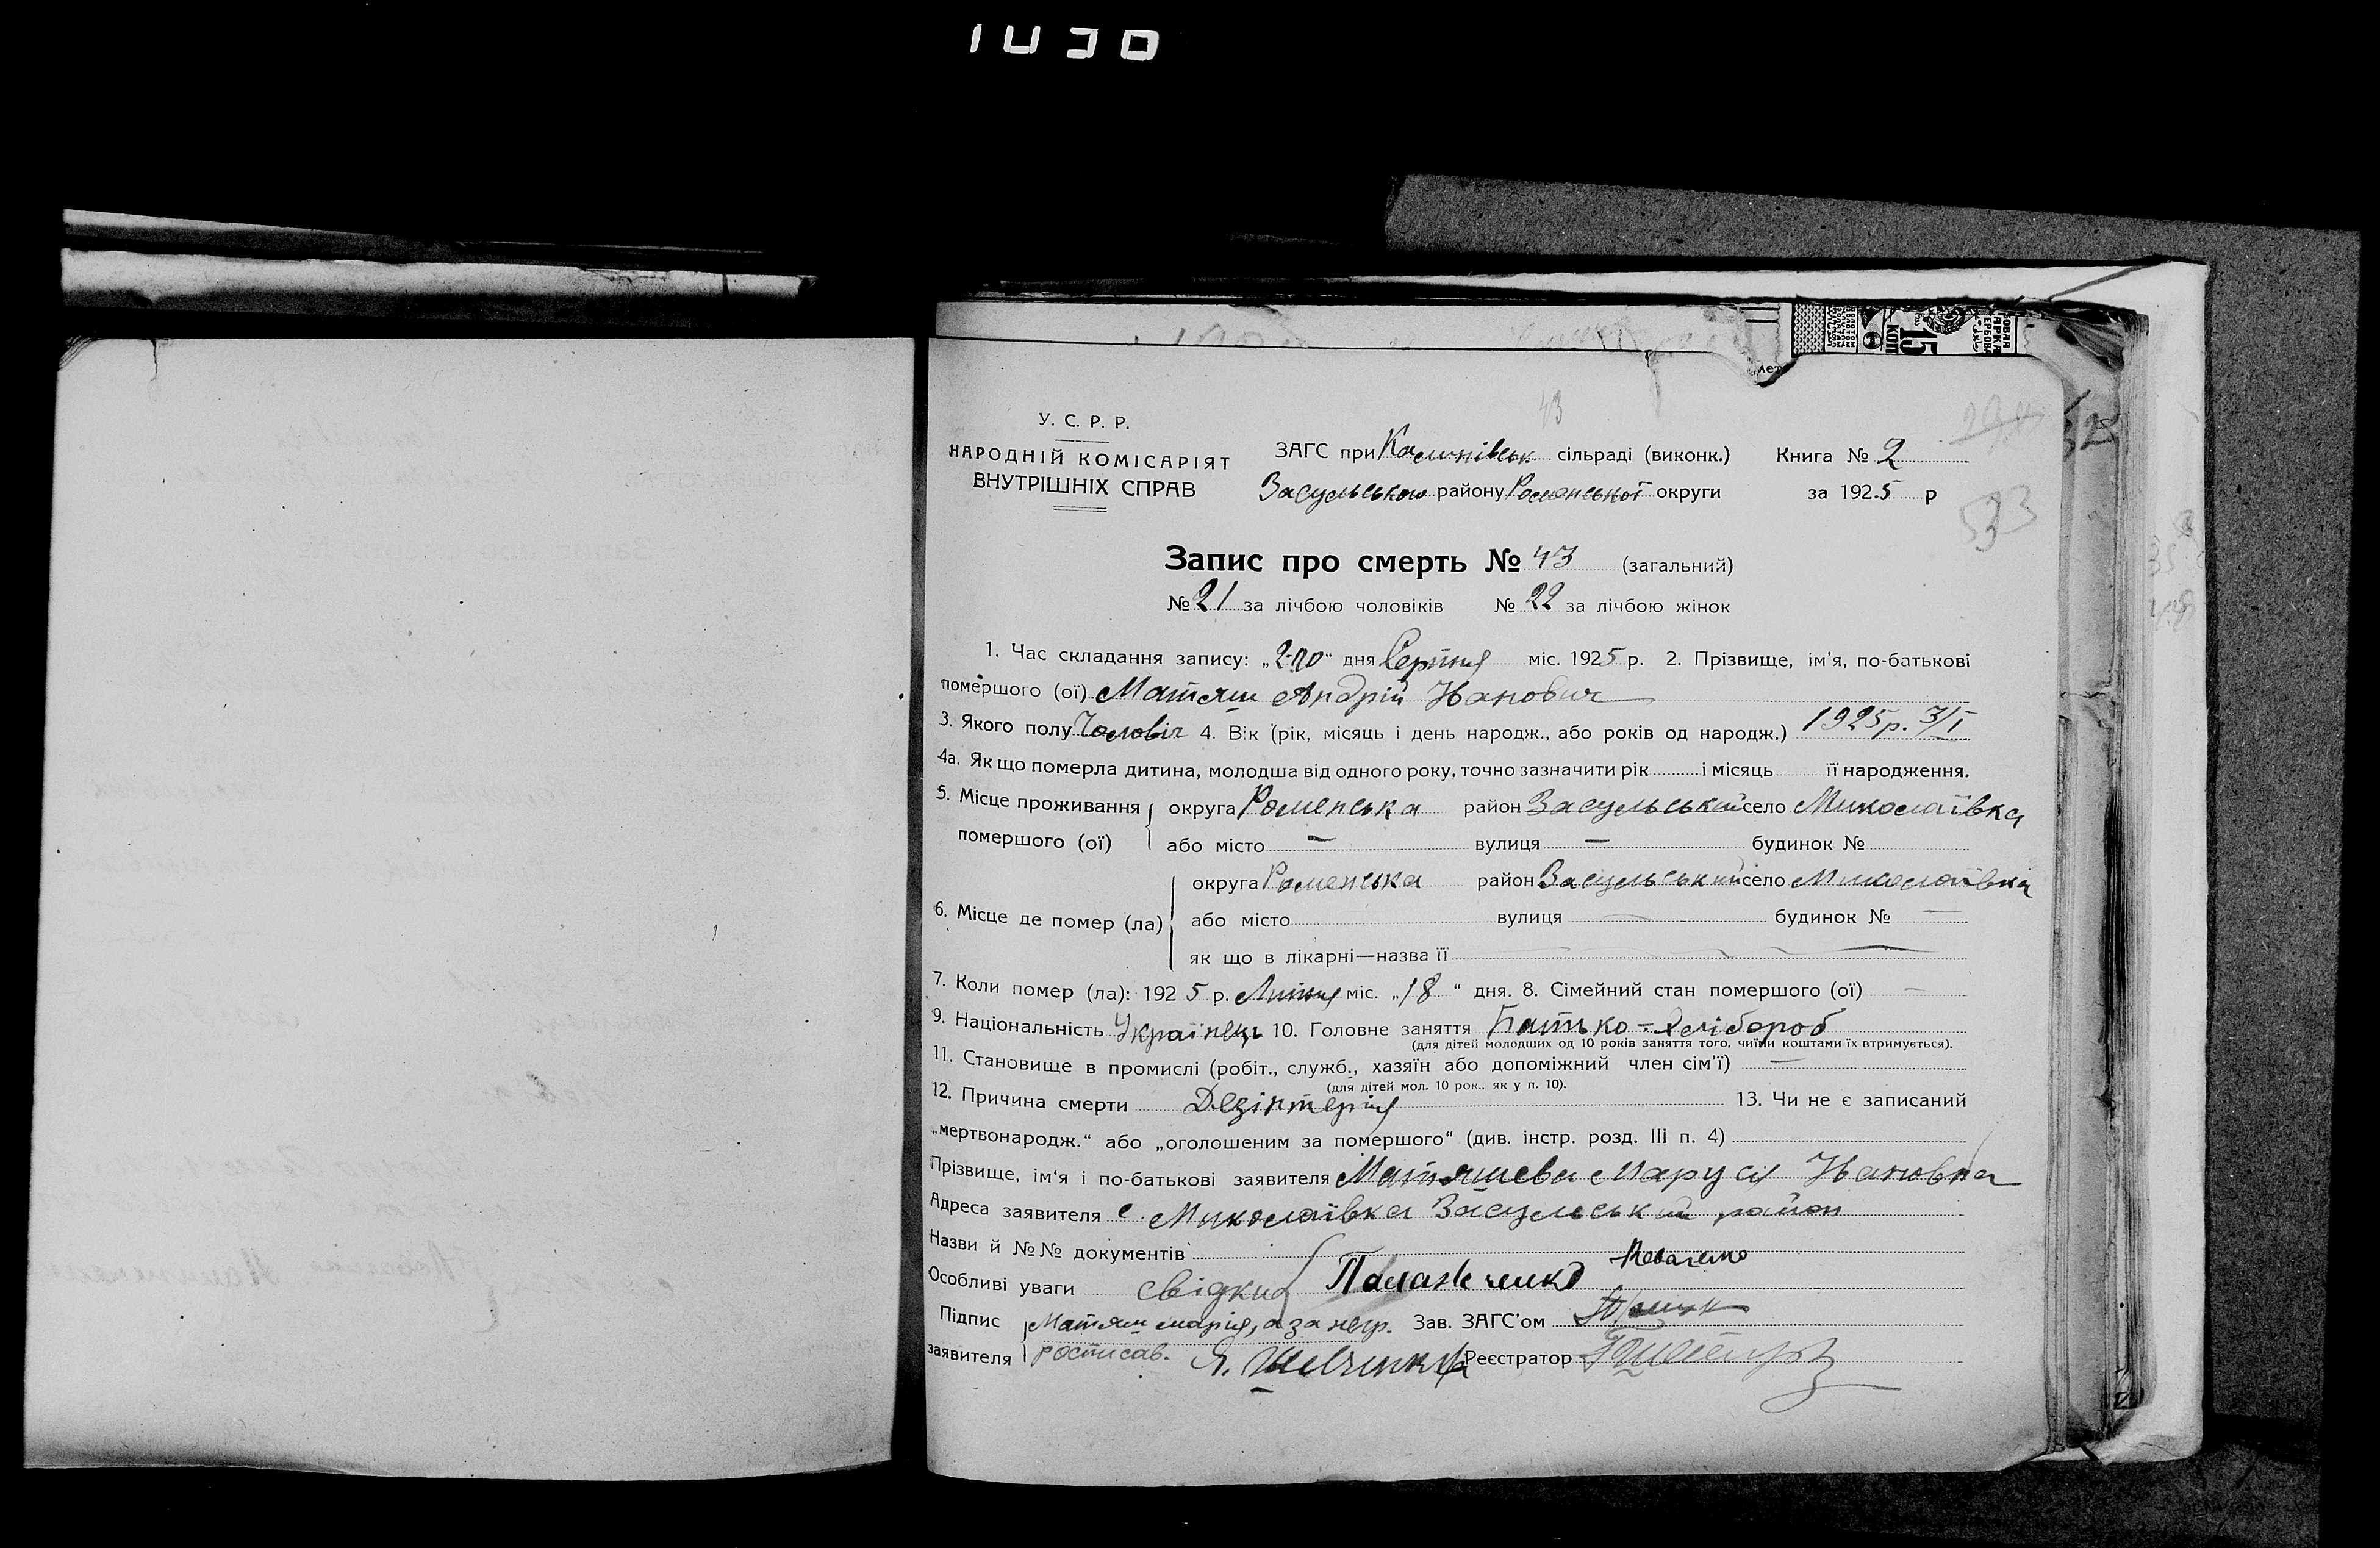 43
У. С. Р. Р.
НАРОДНІЙ КОМІСАРІЯТ
ВНУТРІШНІХ СПРАВ
ЗАГС при Калинівськ сільраді (виконк.) Книга № 2
Засульського району Роменської округи за 1925 р
533
Запис про смерть № 43 (загальний)
№ 21 за лічбою чоловіків № 22 за лічбою жінок
1. Час складання запису: „2-го“ дня Серпня міс. 1925 р. 2. Прізвище, ім'я, по-батькові
помершого (ої) Матяш Андрій Иванович
3. Якого полу Чоловіч 4. Вік (рік, місяць і день народж., або років од народж.) 1925р. 3/I
4а. Як що померла дитина, молодша від одного року, точно зазначити рік і місяць її народження.
5. Місце проживання помершого (ої) округа Роменська район Засульський село Миколаївка
або місто — вулиця — будинок №
6. Місце де помер (ла) округа Роменська район Засульський село Миколаївка
або місто вулиця — будинок № —
як що в лікарні—назва її
7. Коли помер (ла): 1925 р. Липня міс. „18“ дня. 8. Сімейний стан помершого (ої) —
9. Національність Українець 10. Головне заняття Батько - Хлібороб
(для дітей молодших од 10 років заняття того, чиїми коштами їх втримується).
11. Становище в промислі (робіт., служб., хазяїн або допоміжний член сім'ї) —
(для дітей мол. 10 рок., як у п. 10).
12. Причина смерти Дезінтерія 13. Чи не є записаний
„мертвонародж.“ або „оголошеним за помершого“ (див. інстр. розд. III п. 4)
Прізвище, ім'я і по-батькові заявителя Матяшева Маруся Ивановна
Адреса заявителя с. Миколаївка Засульський район
Назви й №№ документів
Особливі уваги свідки
Підпис заявителя Матяш Марія, а за негр. Зав. ЗАГС'ом
росписав. Я. Шевченко Реєстратор
15
КОП